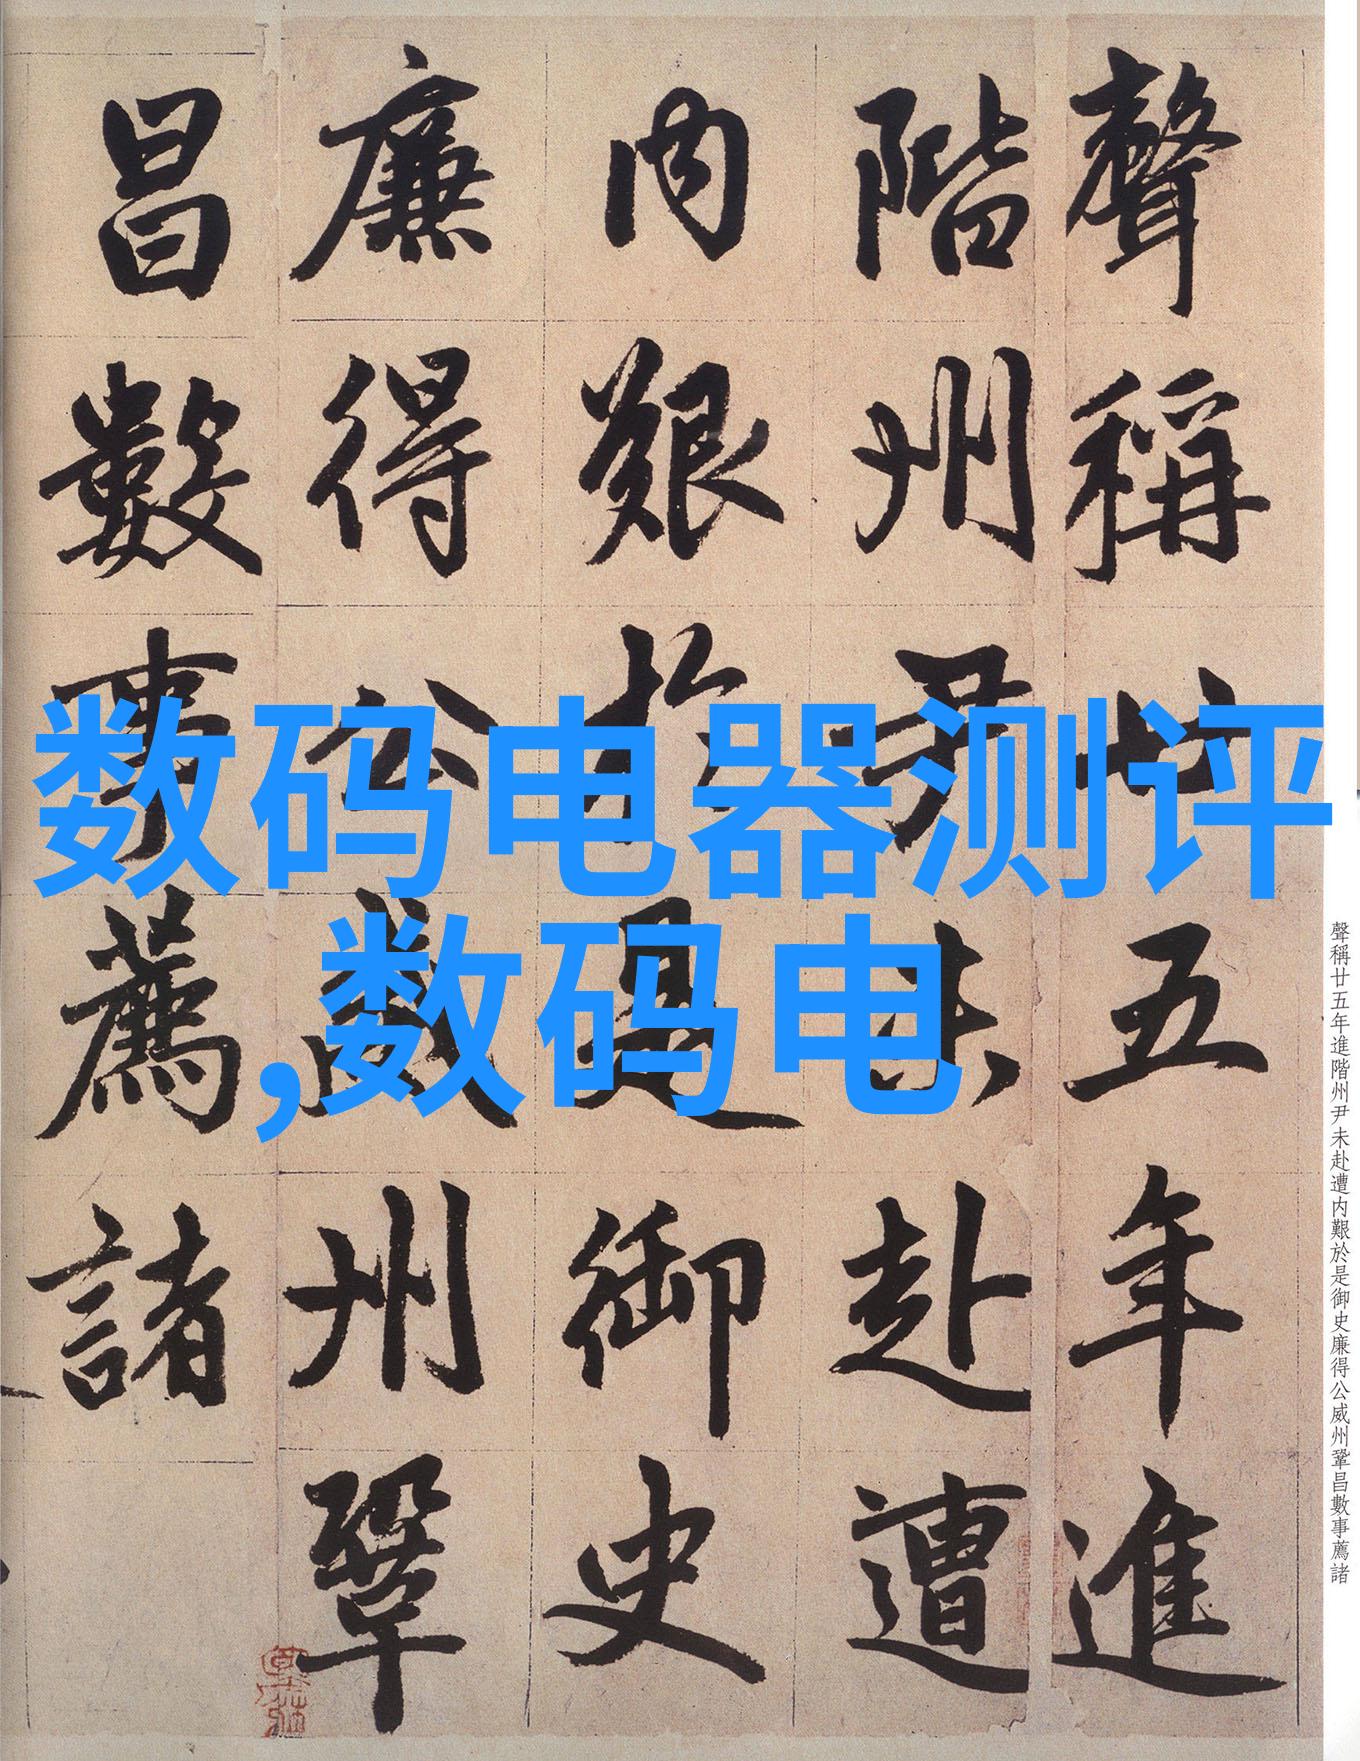 聲稱廿五年進
階州尹未赴遭
內艱於是御史
廉得公威州鞏
昌數事薦諸
数码电器测评
,数码电
聲稱廿五年進階州尹未赴遭内艱於是御史廉得公威州鞏昌數事薦諸